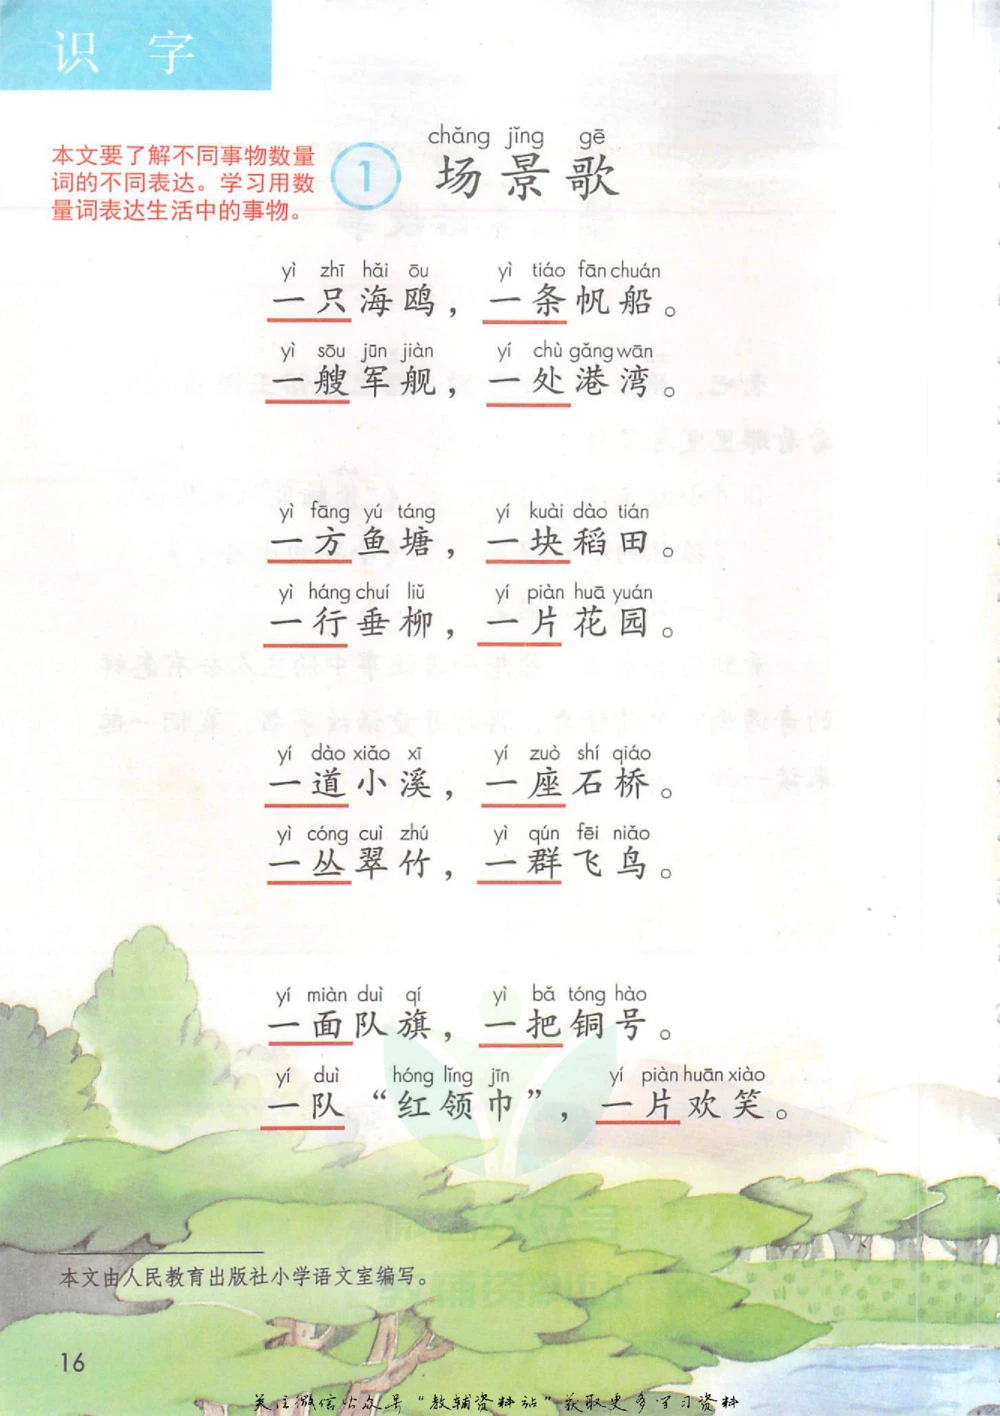 识字
本文要了解不同事物数量
词的不同表达。学习用数
量词表达生活中的事物。
chǎng jǐng gē
1 场景歌
yì zhī hǎi ōu yì tiáo fān chuán
一只海鸥，一条帆船。
yì sōu jūn jiàn yí chù gǎng wān
一艘军舰，一处港湾。
yì fāng yú táng yí kuài dào tián
一方鱼塘，一块稻田。
yì háng chuí liǔ yí piàn huā yuán
一行垂柳，一片花园。
yí dào xiǎo xī yí zuò shí qiáo
一道小溪，一座石桥。
yì cóng cuì zhú yì qún fēi niǎo
一丛翠竹，一群飞鸟。
yí miàn duì qí yì bǎ tóng hào
一面队旗，一把铜号。
yí duì hóng lǐng jīn yí piàn huān xiào
一队“红领巾”，一片欢笑。
本文由人民教育出版社小学语文室编写。
16
关注微信公众号“教辅资料站”获取更多学习资料